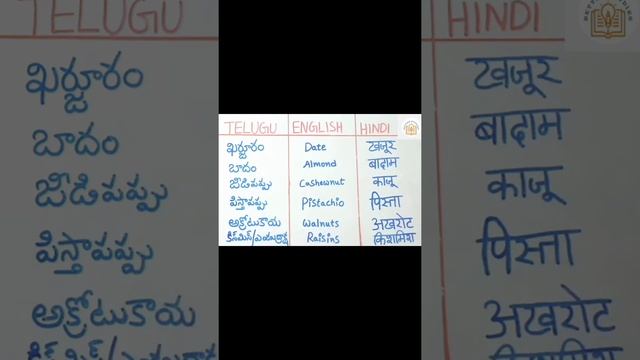 TELUGU ENGLISH HINDI
ఖర్జూరం Date खजूर
బాదం Almond बादाम
జీడిపప్పు Cashewnut काजू
పిస్తాపప్పు Pistachio पिस्ता
అక్రోటుకాయ Walnuts अखरोट
Raisins किशमिश
TELUGU HINDI
ఖర్జూరం खजूर
బాదం बादाम
జీడిపప్పు काजू
పిస్తాపప్పు पिस्ता
అక్రోటుకాయ अखरोट